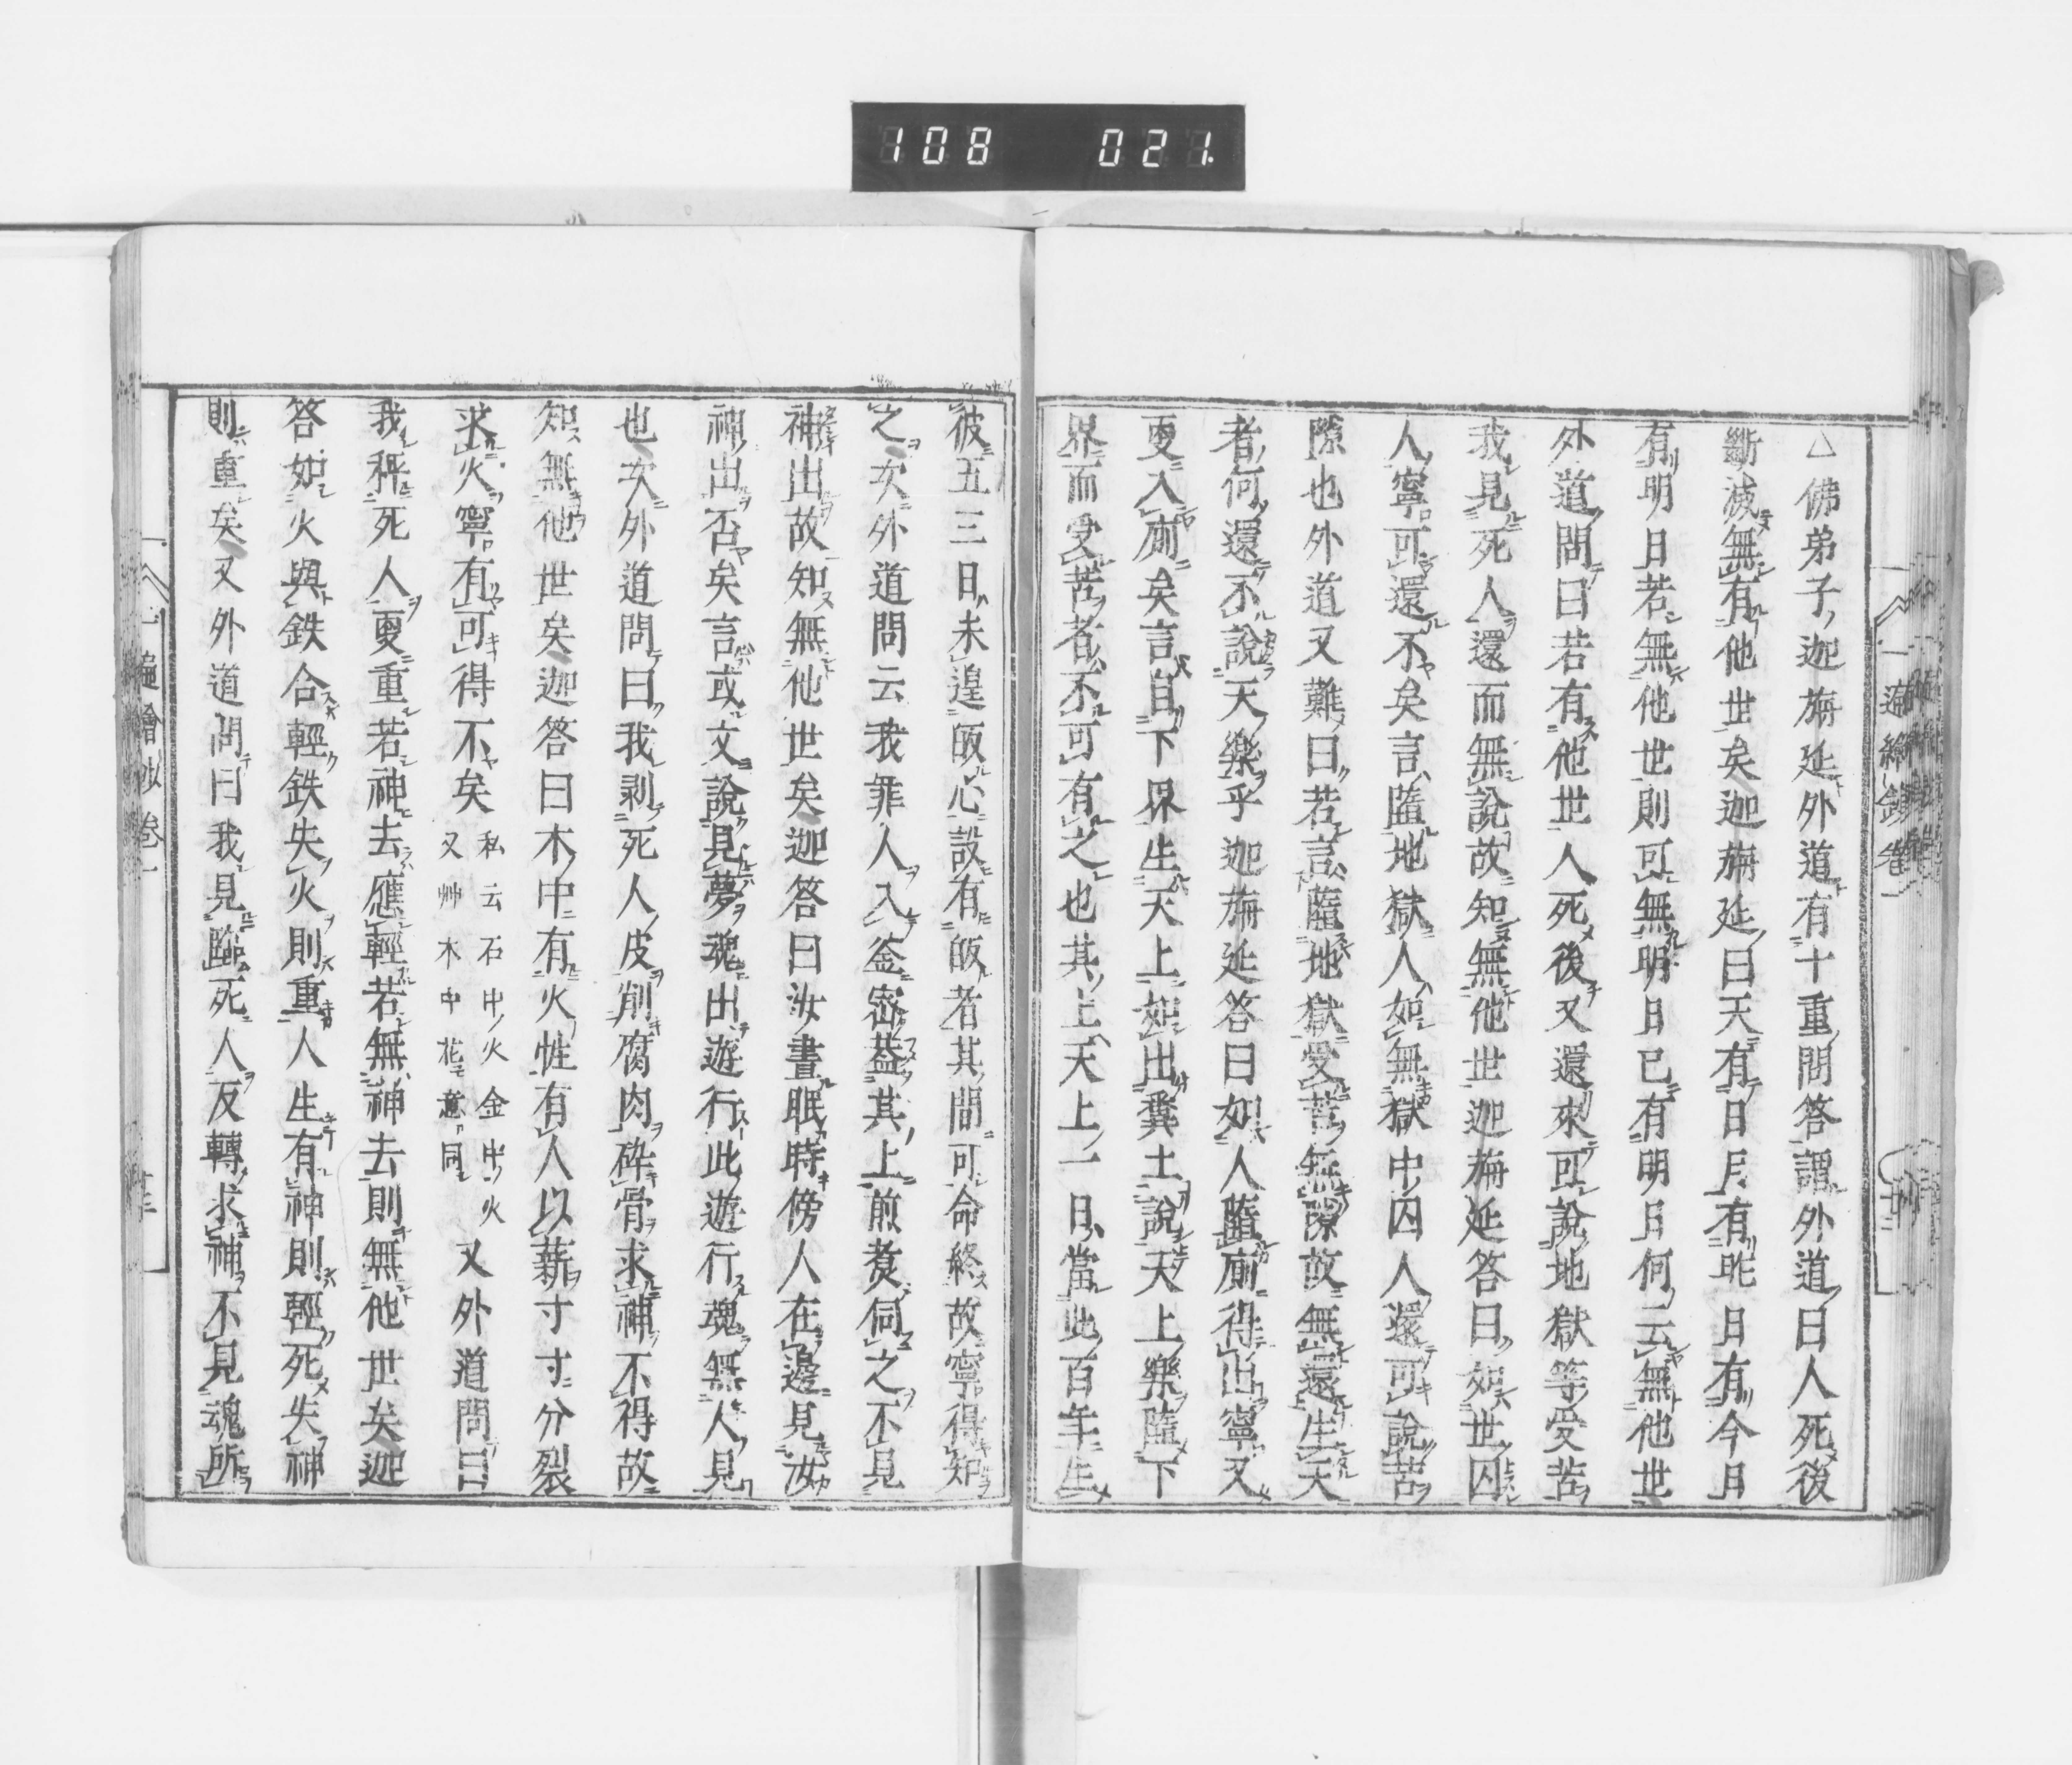 108 021
△佛弟子迦旃延外道有十重問答謂外道曰人死後
斷滅無有他世矣迦旃延曰天有日月有昨日有今日
有明日若無他世則可無明日已有明日何云無他世
外道問曰若有他世人死後又還來可說地獄等受苦
我見死人還而無說故知無他世迦旃延答曰如世囚
人寧可還不矣言墮地獄人如無獄中囚人還可說苦
隙也外道又難曰若言墮地獄受苦無隙故無還生天
者何還不說天樂乎迦旃延答曰如人墮廁得出寧又
更入廁矣言自下界生天上如出糞土說天上樂墮下
界而受苦者不可有之也其上天上一日當此百年生
彼五三日未遑皈心設有皈者其間可命終故寧得知
之次外道問云我罪人入釜密蓋其上煎煑伺之不見
神出故知無他世矣迦答曰汝晝眠時傍人在邊見汝
神出否矣言或文說見夢魂出遊行此遊行魂無人見
也次外道問曰我剥死人皮削腐肉碎骨求神不得故
知無他世矣迦答曰木中有火性有人以薪寸寸分裂
求火寧有可得不矣私云石中火金中火又艸木中花意同又外道問曰
我秤死人更重若神去應輕若無神去則無他世矣迦
答如火與鉄合輕鉄失火則重人生有神則輕死失神
則重矣又外道問曰我見臨死人反轉求神不見魂所
一遍繪抄卷一